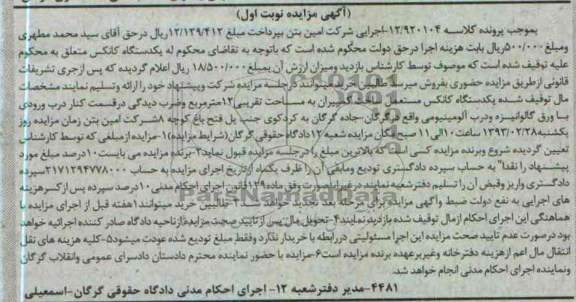 (آگهی مزایده نوبت اول)
بموجب پرونده کلاسه ۱۲/۹۲۰۱۰۴-اجرایی شرکت امین بتن بپرداخت مبلغ ۱۲/۱۳۹/۴۱۲ریال درحق آقای سید محمد مطهری
ومبلغ ۵۰۰/۰۰۰ریال بابت هزینه اجرا درحق دولت محکوم شده است که باتوجه به تقاضای محکوم له یکدستگاه کانکس متعلق به محکوم
علیه توقیف شده است که موصوف توسط کارشناس بازدید ومیزان ارزش آن بمبلغ ۱۸/۵۰۰/۰۰۰ ریال اعلام گردیده که پس ازجری تشریفات
قانونی ازطریق مزایده حضوری بفروش میرسد طالبین خرید میتوانند درجلسه مزایده شرکت وپیشنهاد خود را ارائه وتسلیم نمایند مشخصات
مال توقیف شده یکدستگاه کانکس مستعمل به مساحت تقریبی۱۲مترمربع وضرب دیدگی درقسمت کنار درب ورودی
با ورق گالوانیزه ودرب آلومینیومی واقع درگرگان-جاده گرگان به کردکوی جنب پل فتح باغ کوچه ۸شرکت امین بتن زمان مزایده روز
یکشنبه۱۳۹۳/۰۲/۲۸ ساعت۱۰الی۱۱ صبح مکان مزایده شعبه ۱۲دادگاه حقوقی گرگان(شرایط مزایده)۱-مزایده ازمبلغی که توسط کارشناس
تعیین گردیده شروع وبرنده مزایده کسی است که بالاترین مبلغ را درجلسه مزایده قبول نماید۲-برنده مزایده می بایست۱۰درصد مبلغ مورد
پیشنهاد را نقدا" به حساب سپرده دادگستری تودیع ومابقی آن را ظرف یکماه ازتاریخ اجرای مزایده به حساب ۲۱۷۱۲۹۴۷۷۸۰۰۰سپرده
دادگستری واریز وقبض آن را تسلیم دفترشعبه نمایند درغیراینصورت وفق ماده۱۲۹قانون اجرای احکام مدنی ۱۰درصد سپرده پس ازکسرهزینه
های اجرایی به نفع دولت ضبط وآگهی مزایده تجدید خریدمیتوانند ۱هفته قبل از اجرای مزایده با
هماهنگی این اجرای احکام ازمال توقیف شده بازدید نمایند۴-تحویل مال پس ازتایید صحت مزایده ازناحیه دادگاه صادر کننده اجرائیه خواهد
بود درصورت عدم تایید صحت مزایده این اجرا مسئولیتی دررابطه با خریدار ندارد وفقط مبلغ تودیع شده عودت میشود۵-کلیه هزینه های نقل
انتقال مال اعم ازهزینه دفترخانه وغیربرعهده برنده مزایده است۶-مزایده با حضور نماینده محترم دادستان دادسرای عمومی وانقلاب گرگان
ونماینده اجرای احکام مدنی انجام خواهد شد.
۴۴۸۱-مدیر دفترشعبه ۱۲- اجرای احکام مدنی دادگاه حقوقی گرگان-اسمعیلی